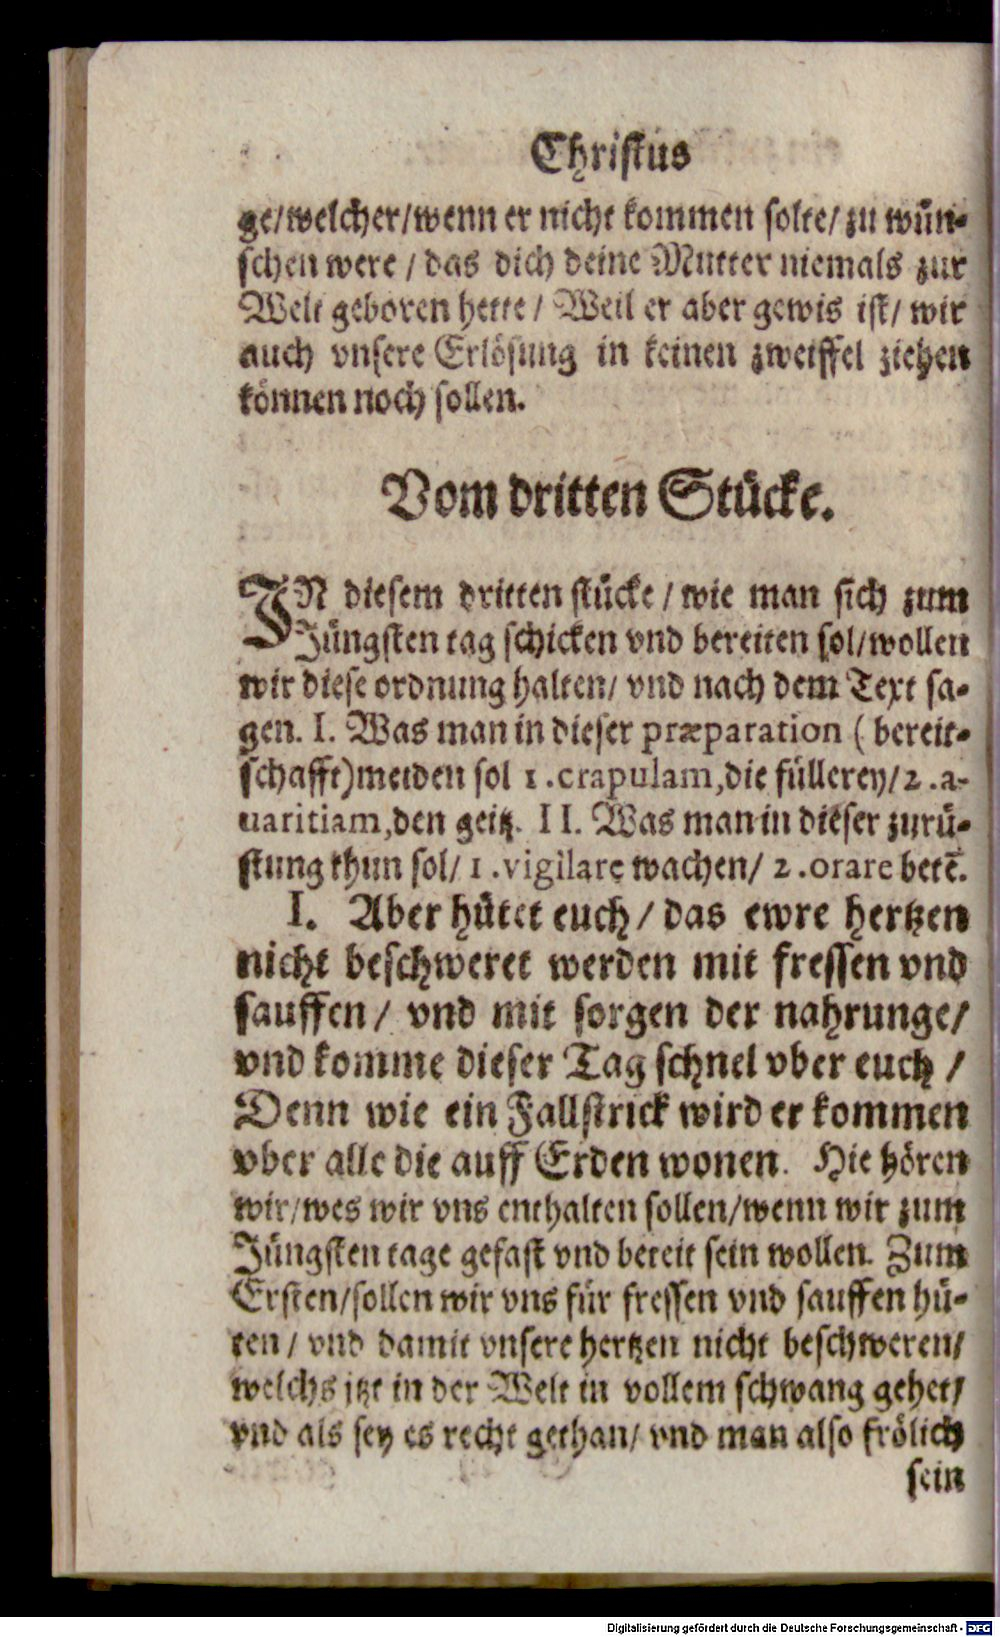 Christus
ge/welcher/wenn er nicht kommen solte/zu wün-
schen were / das dich deine Mutter niemals zur
Welt geboren hette / Weil er aber gewis ist/ wir
auch vnsere Erlösung in keinen zweiffel ziehen
können noch sollen.
Vom dritten Stücke.
IN diesem dritten stücke / wie man sich zum
Jüngsten tag schicken vnd bereiten sol/wollen
wir diese ordnung halten/ vnd nach dem Text sa-
gen. I. Was man in dieser præparation ( bereit-
schafft)meiden sol 1.crapulam,die füllerey/2.a-
uaritiam,den geitz. II. Was man in dieser zurü-
stung thun sol/ 1.vigilare wachen/ 2.orare betē.
I. Aber hütet euch / das ewre hertzen
nicht beschweret werden mit fressen vnd
sauffen / vnd mit sorgen der nahrunge/
vnd komme dieser Tag schnel vber euch /
Denn wie ein Fallstrick wird er kommen
vber alle die auff Erden wonen. Hie hören
wir/wes wir vns enthalten sollen/wenn wir zum
Jüngsten tage gefast vnd bereit sein wollen. Zum
Ersten/sollen wir vns für fressen vnd sauffen hü-
ten / vnd damit vnsere hertzen nicht beschweren/
welchs jtzt in der Welt in vollem schwang gehet/
vnd als sey es recht gethan/ vnd man also frölich
sein
Digitalisierung gefördert durch die Deutsche Forschungsgemeinschaft - DFG